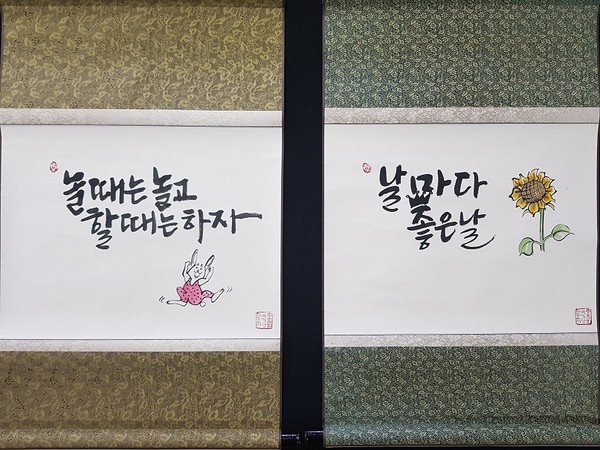 놀때는 놀고
할때는하자
날마다
좋은날